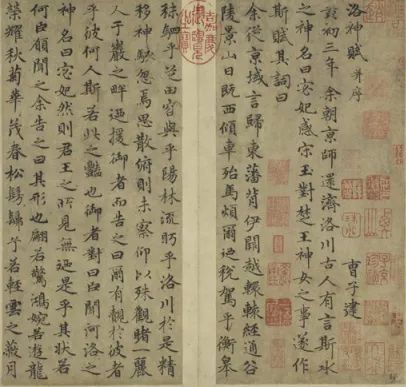 洛神賦 并序
曹子建
黃初三年余朝京師還濟洛川古人有言斯水
之神名曰宓妃感宋玉對楚王神女之事遂作
斯賦其詞曰
余從京域言歸東藩背伊闕越轘轅經通谷
陵景山日既西傾車殆馬煩爾迺稅駕乎衡皋
秣駟乎芝田容與乎陽林流眄乎洛川於是精
移神駭忽焉思散俯則未察仰以殊觀睹一麗
人于巖之畔迺援御者而告之曰爾有覿於彼者
乎彼何人斯若此之豔也御者對曰臣聞河洛之
神名曰宓妃然則君王之所見無迺是乎其狀若
何臣願聞之余告之曰其形也翩若驚鴻婉若游龍
榮耀秋菊華茂春松髣髴兮若輕雲之蔽月